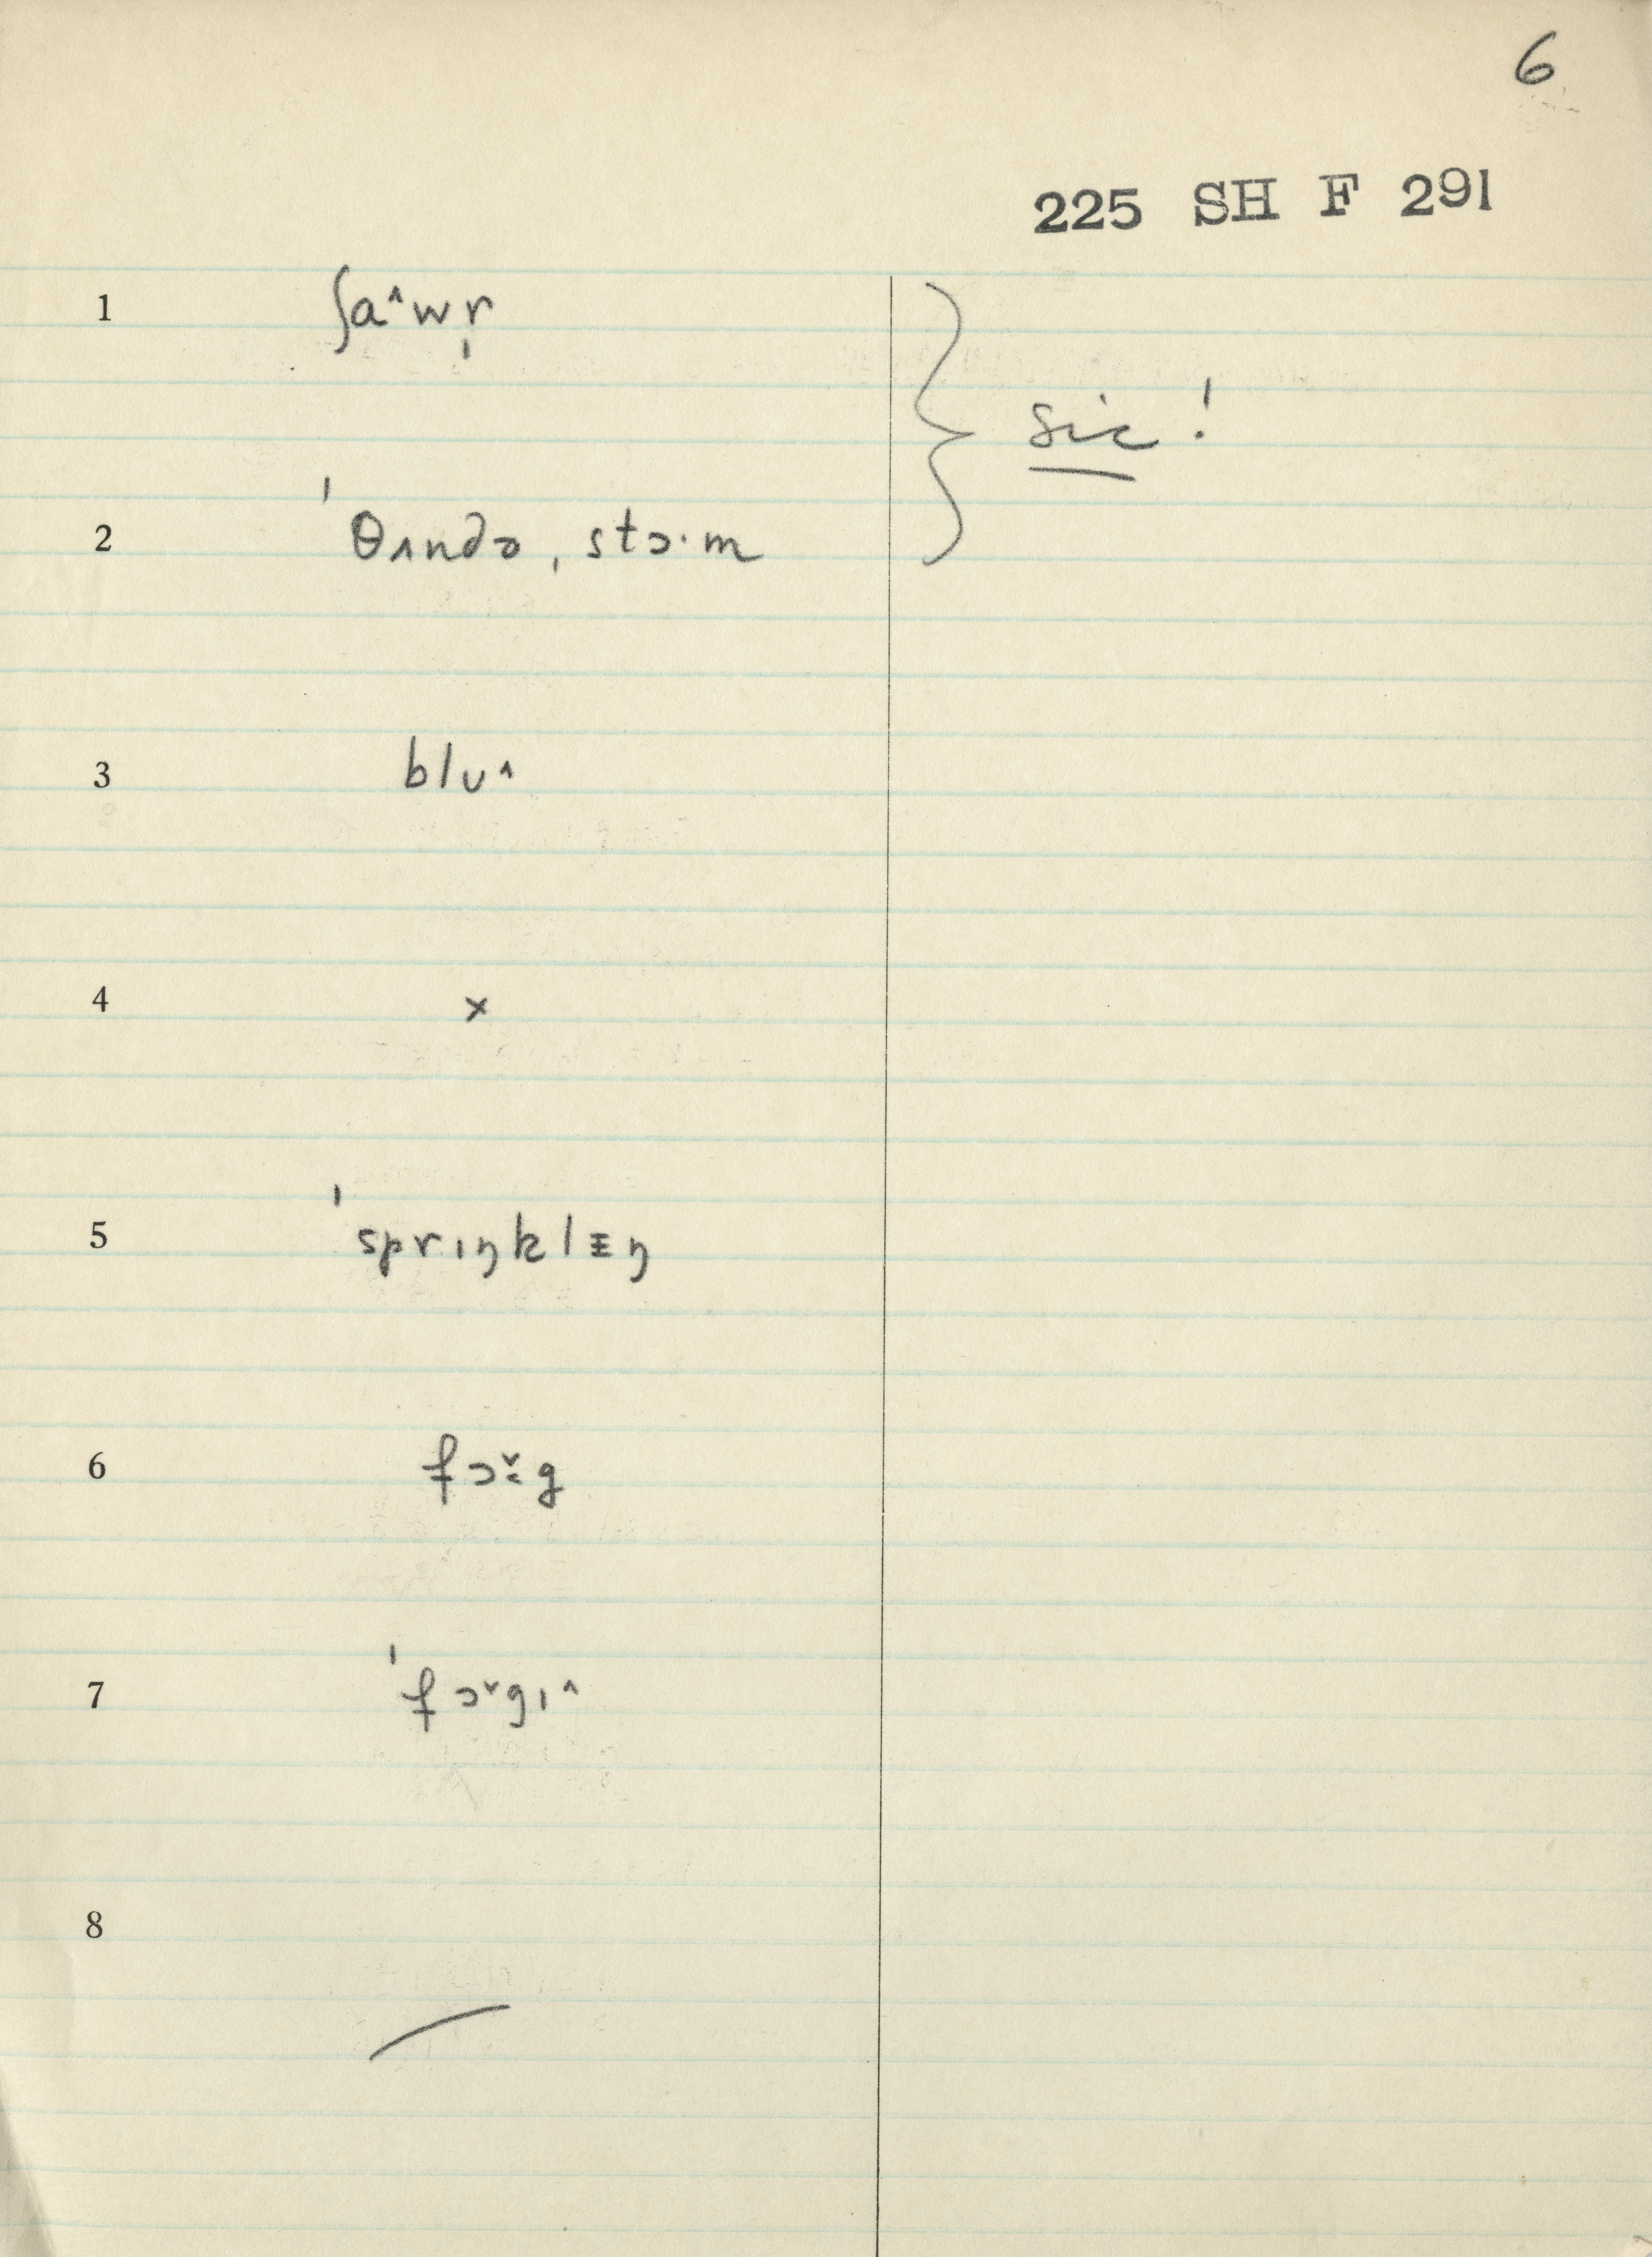 6
225 SH F 291
1 ʃa˄wr̩
2 ˈθʌndə ˌstɔ·m
sic!
3 blʊ˄
4 x
5 ˈsprɪŋklɪŋ
6 fɔ˅·g
7 ˈfɔ˅gɪ˄
8